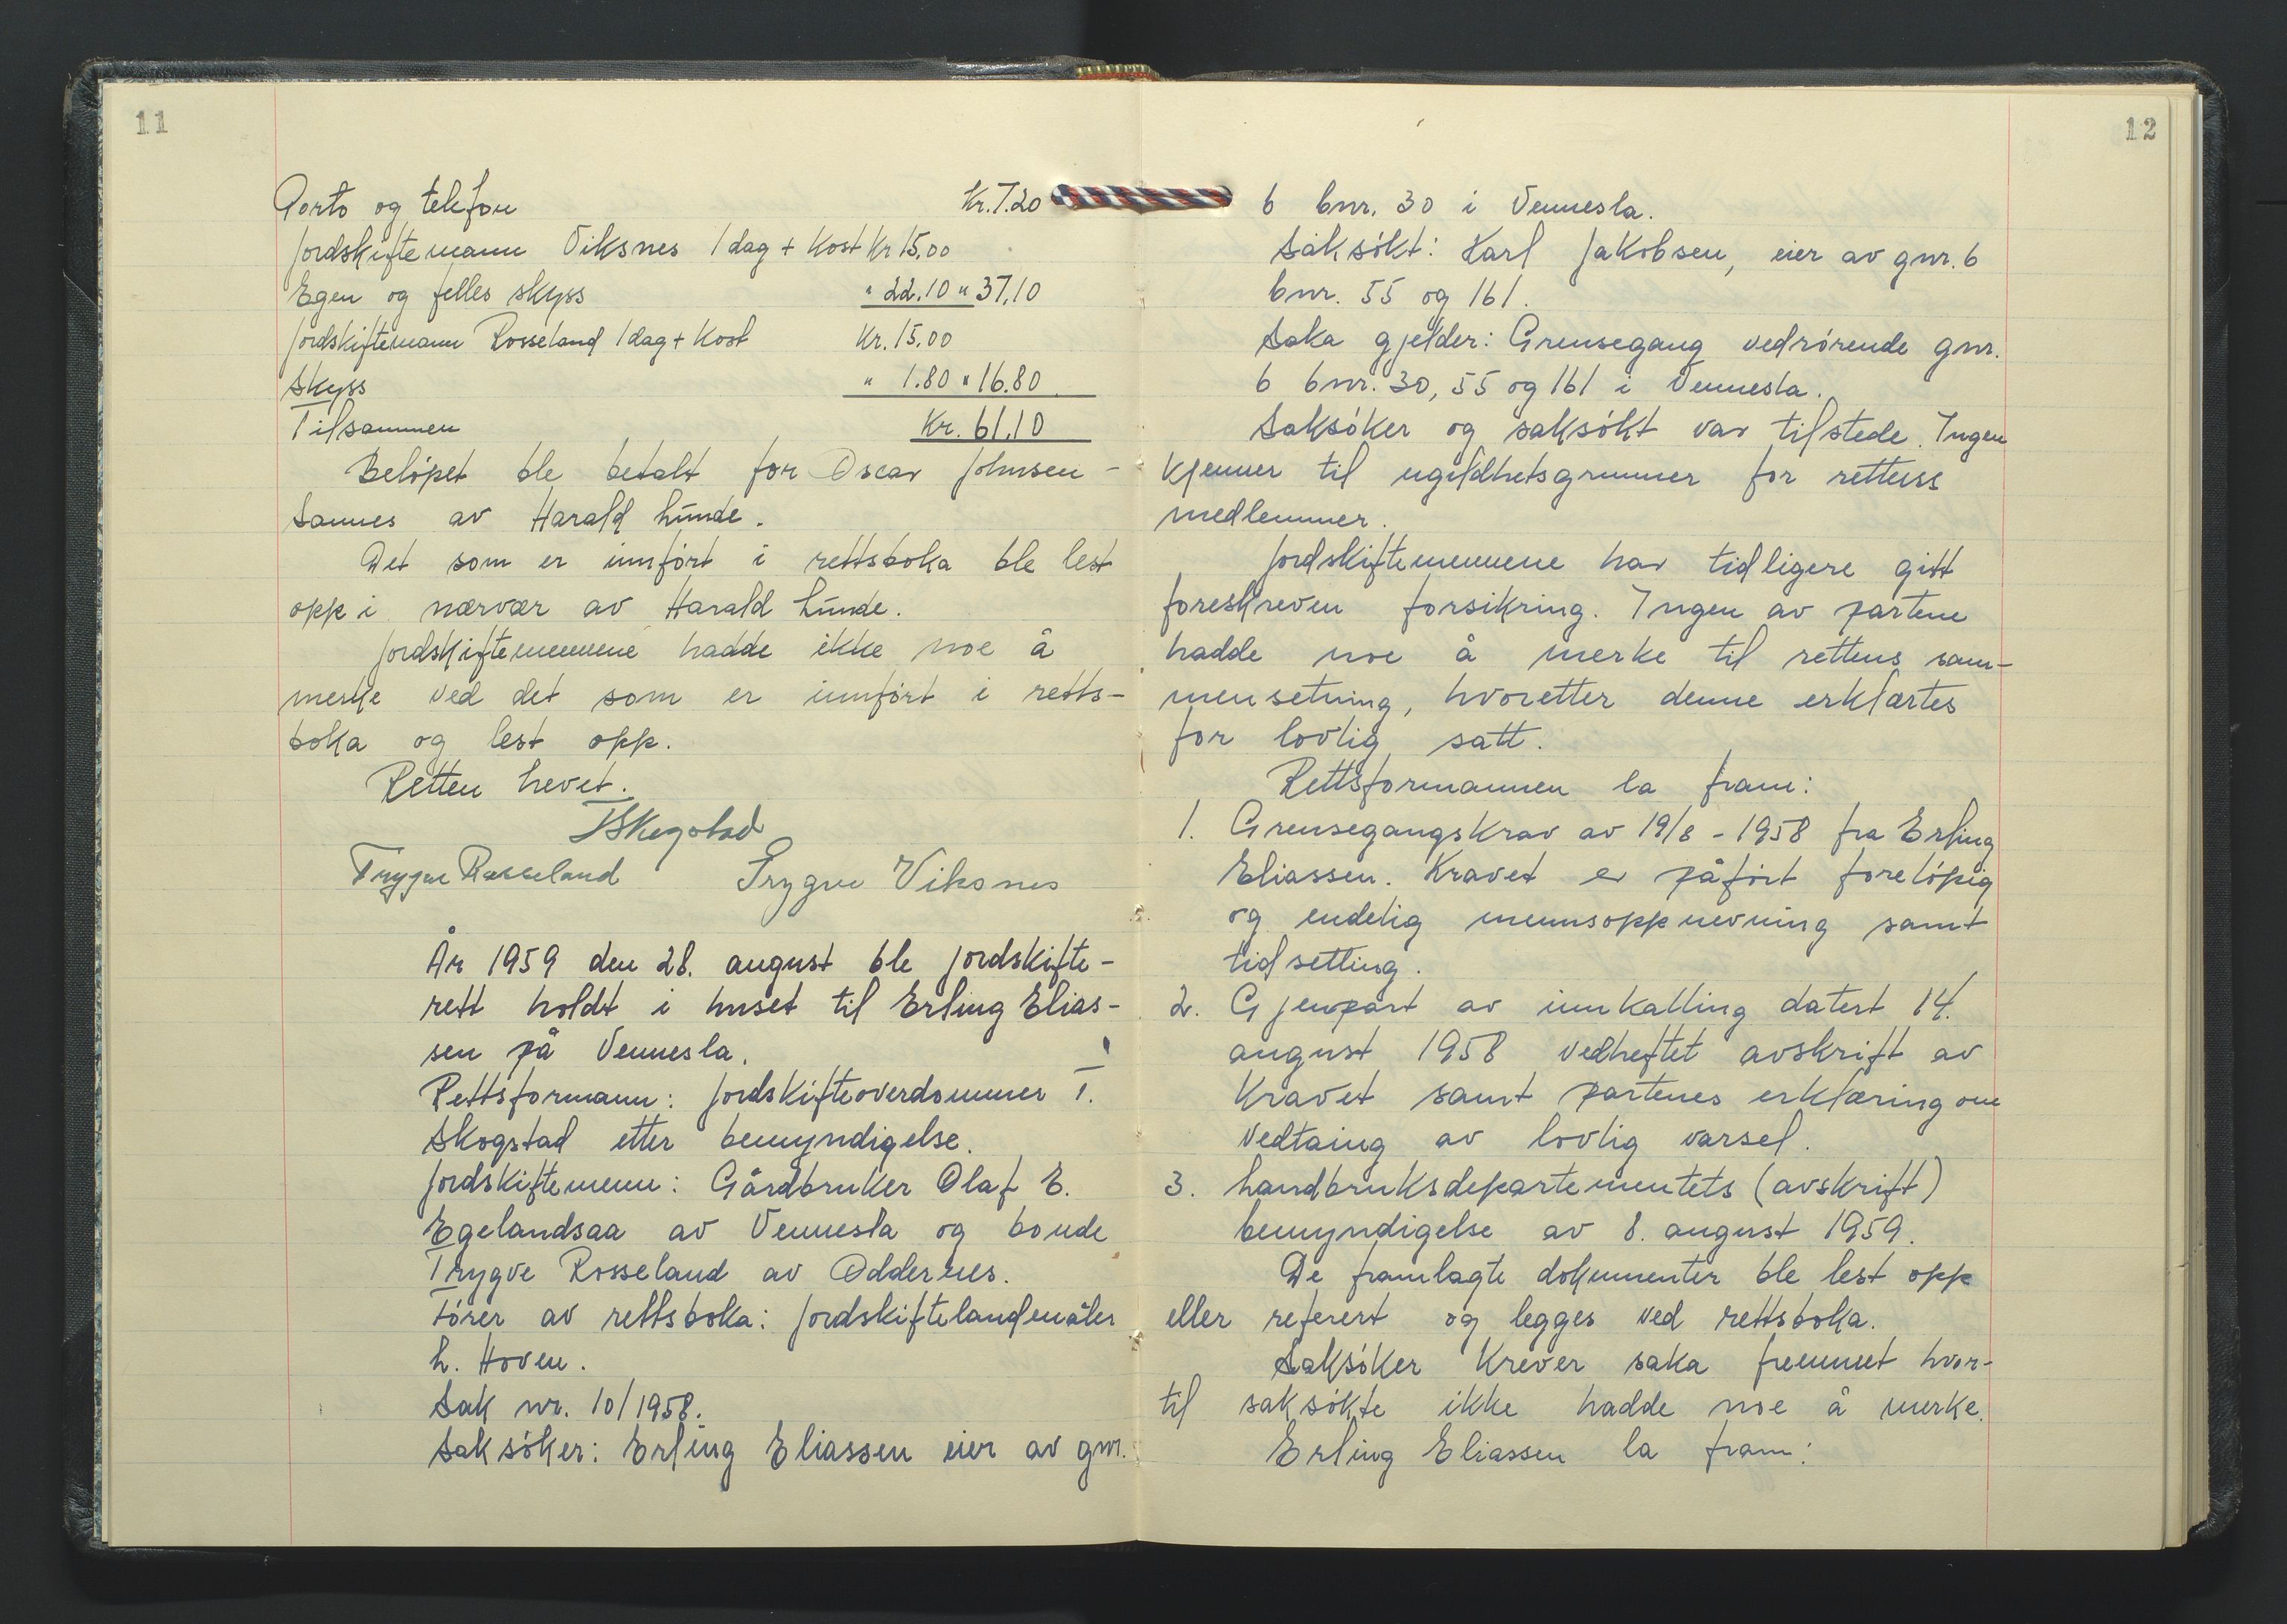 11
Porto og telefon Kr. 7.20
Jordskiftemann Viksnes 1 dag + kost Kr 15,00
Egen og felles skyss " 22.10 " 37,10
Jordskiftemann Rosseland 1 dag + kost Kr. 15.00
Skyss " 1.80 " 16.80
Tilsammen Kr. 61,10
Beløpet ble betalt for Oscar Johnsen -
Sannes av Harald Lunde.
Det som er innført i rettsboka ble lest
opp i nærvær av Harald Lunde.
Jordskiftemennene hadde ikke noe å
merke ved det som er innført i retts-
boka og lest opp.
Retten hevet.
T Skogstad
Trygve Rosseland Trygve Viksnes
År 1959 den 28. august ble jordskifte-
rett holdt i huset til Erling Elias-
sen på Vennesla.
Rettsformann: Jordskifteoverdommer T.
Skogstad etter bemyndigelse.
Jordskiftemenn: Gårdbruker Olaf E.
Egelandsaa av Vennesla og bonde
Trygve Rosseland av Oddernes.
Fører av rettsboka: Jordskiftelandmåler
L. Hoven.
Sak nr. 10/1958.
Saksøker: Erling Eliassen eier av gnr.
12
6 bnr. 30 i Vennesla.
Saksøkt: Karl Jakobsen, eier av gnr. 6
bnr. 55 og 161.
Saka gjelder: Grensegang vedrørende gnr.
6 bnr. 30, 55 og 161 i Vennesla.
Saksøker og saksøkt var tilstede. Ingen
kjenner til ugildhetsgrunner for rettens
medlemmer.
Jordskiftemennene har tidligere gitt
foreskreven forsikring. Ingen av partene
hadde noe å merke til rettens sam-
mensetning, hvoretter denne erklærtes
for lovlig satt.
Rettsformannen la fram:
1. Grensegangskrav av 19/8 - 1958 fra Erling
Eliassen. Kravet er påført foreløpig
og endelig mennsoppnevning samt
tidsetting.
2. Gjenpart av innkalling datert 14.
august 1958 vedheftet avskrift av
kravet samt partenes erklæring om
vedtaing av lovlig varsel.
3. Landbruksdepartementets (avskrift)
bemyndigelse av 8. august 1959.
De framlagte dokumenter ble lest opp
eller referert og legges ved rettsboka.
Saksøker krever saka fremmet hvor-
til saksøkte ikke hadde noe å merke.
Erling Eliassen la fram: